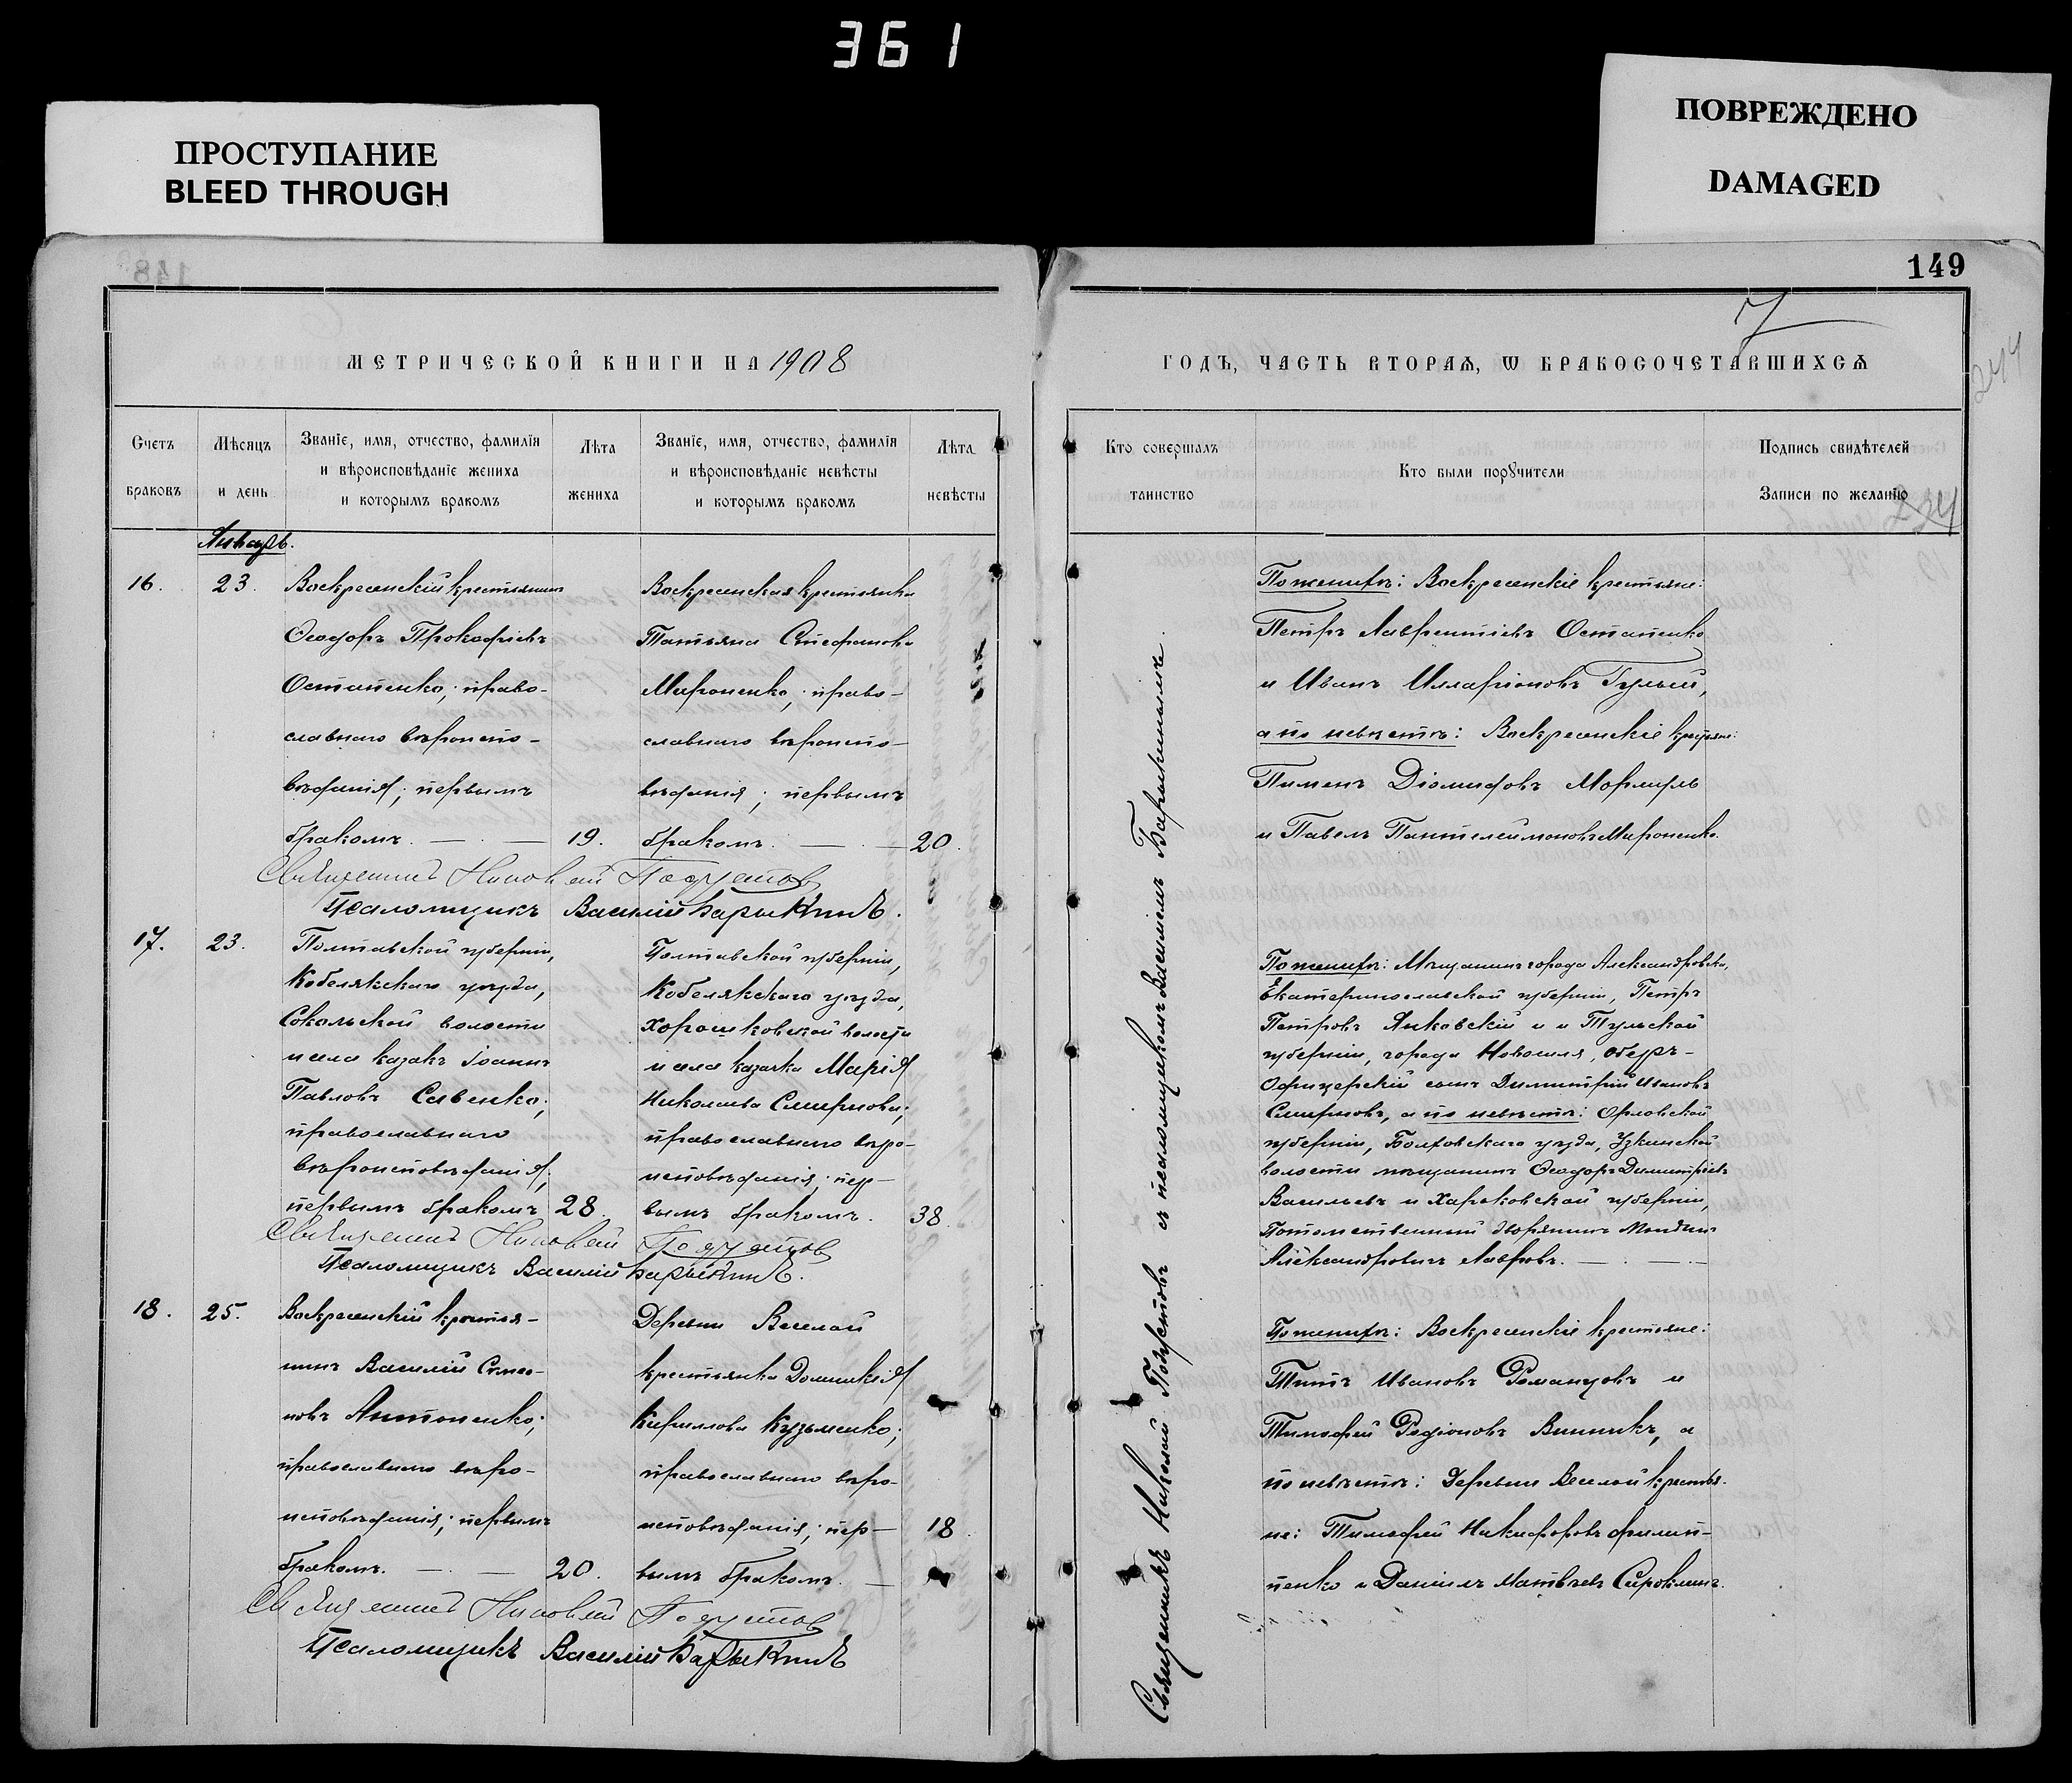 361
ПРОСТУПАНИЕ
BLEED THROUGH
ПОВРЕЖДЕНО
DAMAGED
149
7
244
МЕТРИЧЕСКОЙ КНИГИ НА 1908
ГОДЪ, ЧАСТЬ ВТОРАѦ, Ѡ БРАКОСОЧЕТАВШИХСѦ
Счетъ
браковъ
Мѣсяцъ
и день
Званіе, имя, отчество, фамилія
и вѣроисповѣданіе жениха
и которымъ бракомъ
Лѣта
жениха
Званіе, имя, отчество, фамилія
и вѣроисповѣданіе невѣсты
и которымъ бракомъ
Лѣта
невѣсты
Кто совершалъ
таинство
Кто были порꙋчители
Подпись свидѣтелей
Записи по желанію
234
Январь.
16.
23.
Воскресенскій крестьянинъ
Ѳеодоръ Прокофіевъ
Остапенко; право-
славнаго вѣроиспо-
вѣданія; первымъ
бракомъ.
19.
Воскресенская крестьянка
Татьяна Стефанова
Мироненко; право-
славнаго вѣроиспо-
вѣданія; первымъ
бракомъ.
20.
Священникъ Николай Подустовъ
Псаломщикъ Василій Барыкинъ.
17.
23.
Полтавской губерніи,
Кобелякскаго уѣзда,
Сокольской волости
и села казакъ Іоаннъ
Павловъ Савенко;
православнаго
вѣроисповѣданія;
первымъ бракомъ
28.
Полтавской губерніи,
Кобелякскаго уѣзда,
Хорошковской волости
и села казачка Марія
Николаева Смирнова;
православнаго вѣро-
исповѣданія; пер-
вымъ бракомъ.
38.
Священникъ Николай Подустовъ
Псаломщикъ Василій Барыкинъ.
18.
25.
Воскресенскій крестья-
нинъ Василій Симео-
новъ Антоненко;
православнаго вѣро-
исповѣданія; первымъ
бракомъ.
20.
Деревни Веселой
крестьянка Домникія
Кириллова Кузьменко;
православнаго вѣро-
исповѣданія; пер-
вымъ бракомъ.
18.
Священникъ Николай Подустовъ
Псаломщикъ Василій Барыкинъ
Священникъ Николай Подустовъ съ псаломщикомъ Василіемъ Барыкинымъ.
По женихѣ: Воскресенскіе крестьяне:
Петръ Лаврентіевъ Остапенко
и Иванъ Илларіоновъ Гулый,
а по невѣстѣ: Воскресенскіе крестьяне:
Пименъ Діомидовъ Мормуль
и Павелъ Пантелеймоновъ Мироненко.
По женихѣ: Мѣщанинъ города Александровска,
Екатеринославской губерніи, Петръ
Петровъ Янковскій и Тульской
губерніи, города Новосиля, оберъ-
офицерскій сынъ Димитрій Ивановъ
Смирновъ, а по невѣстѣ: Орловской
губерніи, Болховскаго уѣзда,
волости мѣщанинъ Ѳеодоръ Димитріевъ
Васильевъ и Харьковской губерніи,
Потомственный дворянинъ
Александровичъ Лавровъ.
По женихѣ: Воскресенскіе крестьяне:
Титъ Ивановъ Романцовъ и
Тимофей Родіоновъ Винникъ, а
по невѣстѣ: Деревни Веселой крестья-
не: Тимофей Никифоровъ Филип-
пенко и Даніилъ Матвѣевъ Сироклинъ.